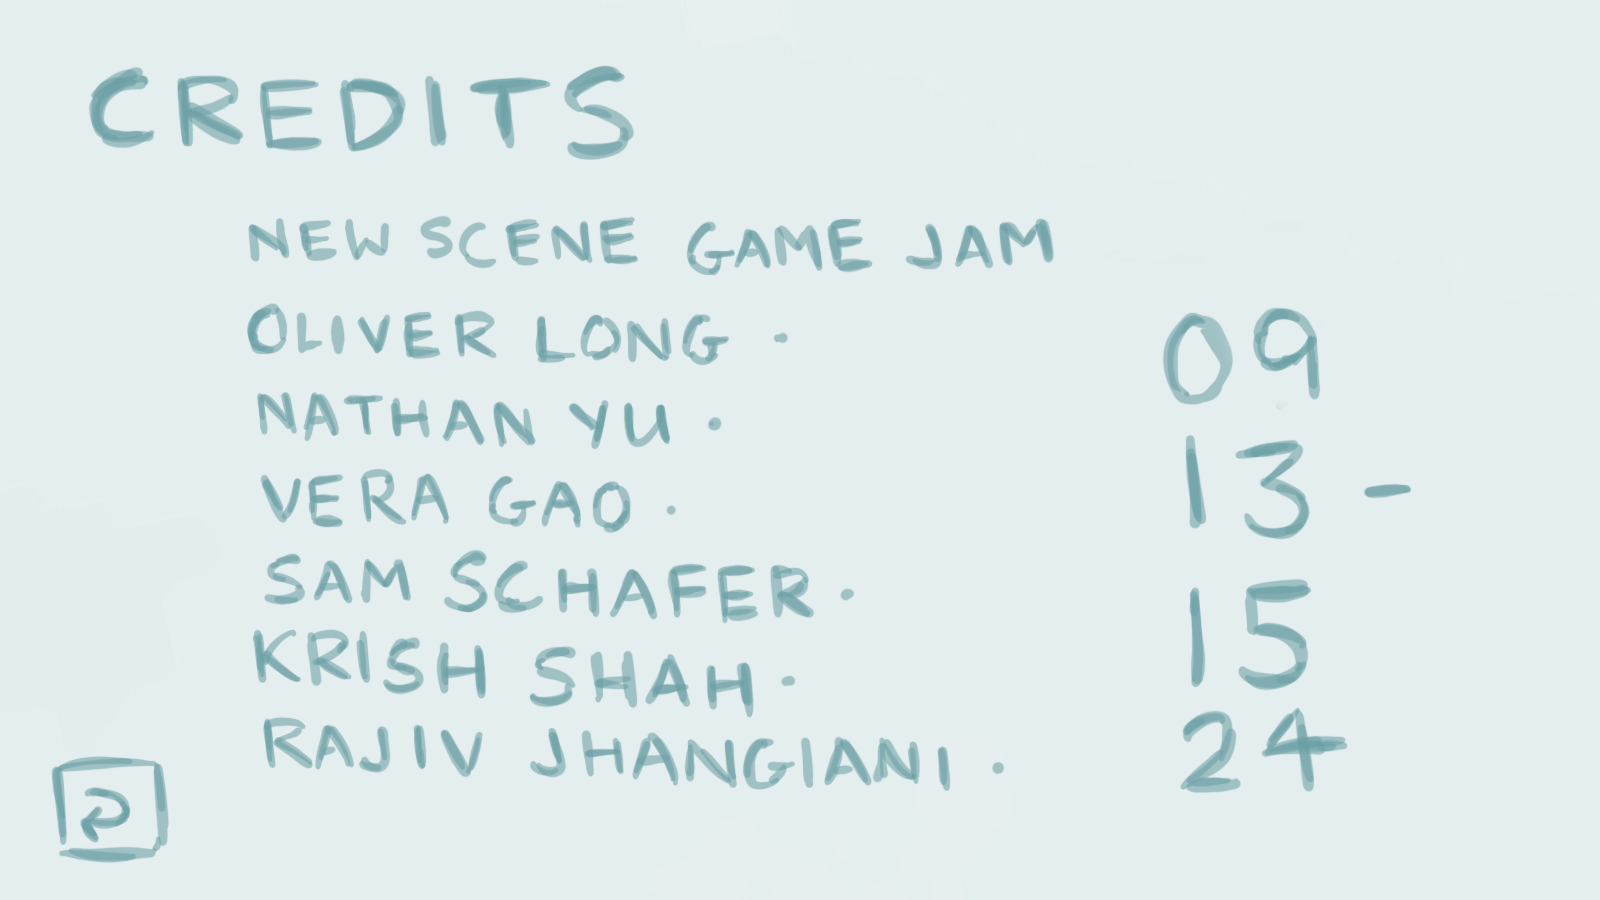 CREDITS
NEW SCENE GAME JAM
OLIVER LONG ·
NATHAN YU ·
VERA GAO ·
SAM SCHAFER ·
KRISH SHAH ·
RAJIV JHANGIANI ·
09
13 -
15
24